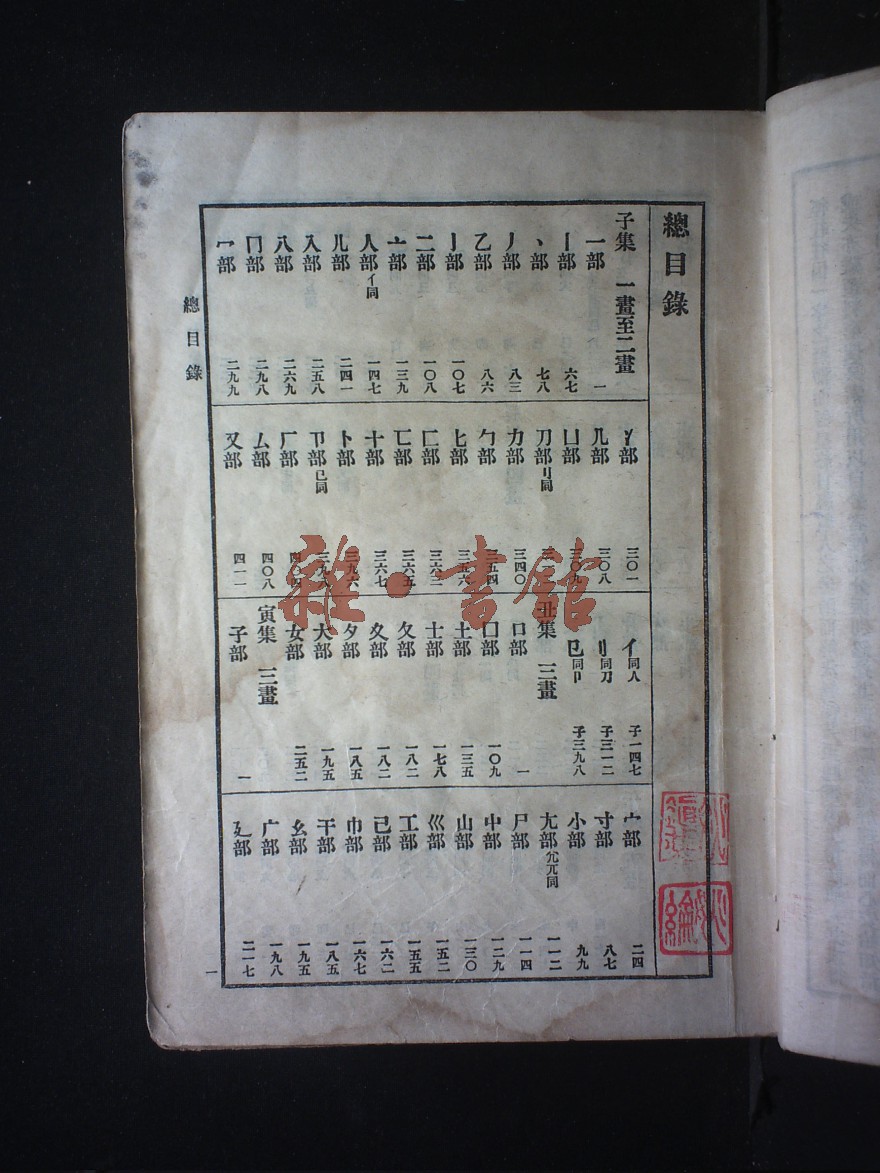 總目錄
子集 一畫至二畫
一部 一
丨部 六七
丶部 七八
丿部 八三
乙部 八六
亅部 一〇七
二部 一〇八
亠部 一三九
人部亻同 一四七
儿部 二四一
入部 二五八
八部 二六九
冂部 二九八
冖部 二九九
冫部 三〇一
几部 三〇八
凵部 三〇九
刀部刂同
力部 三四〇
勹部 三五四
匕部 三五六
匚部 三六三
匸部 三六五
十部 三六七
卜部 三九六
卩部㔾同 三九八
厂部
厶部 四〇八
又部 四一一
亻同人 子一四七
刂同刀 子三一二
㔾同卩 子三九八
丑集 三畫
口部 一
囗部 一〇九
土部 一三五
士部 一七八
夂部 一八二
夊部 一八二
夕部 一八五
大部 一九五
女部 二五二
寅集 三畫
子部 一
宀部 二四
寸部 八七
小部 九九
尢部尣兀同 一一二
尸部 一一四
屮部 一二九
山部 一三〇
巛部 一五二
工部 一五五
己部 一六二
巾部 一六七
干部 一八五
幺部 一九五
广部 一九八
廴部 二一七
總目錄
一
雜·書館